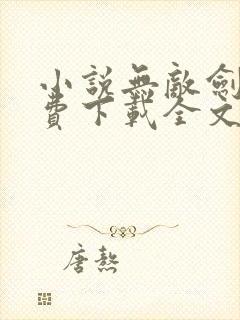 小說無敵劍
費下載全文
唐熬